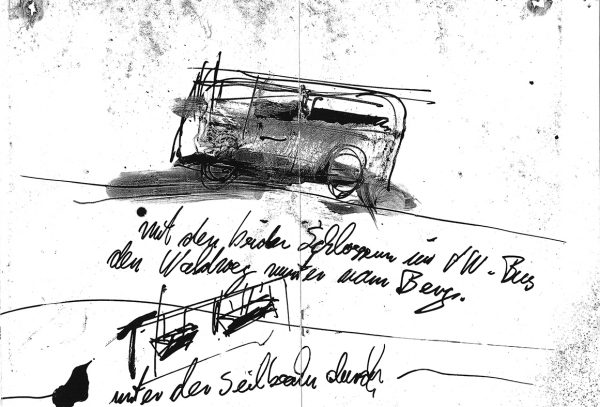 mit den beiden Schlossern im VW-Bus
den Waldweg runter vom Berg.
T.
unter der Seilbahn durch,